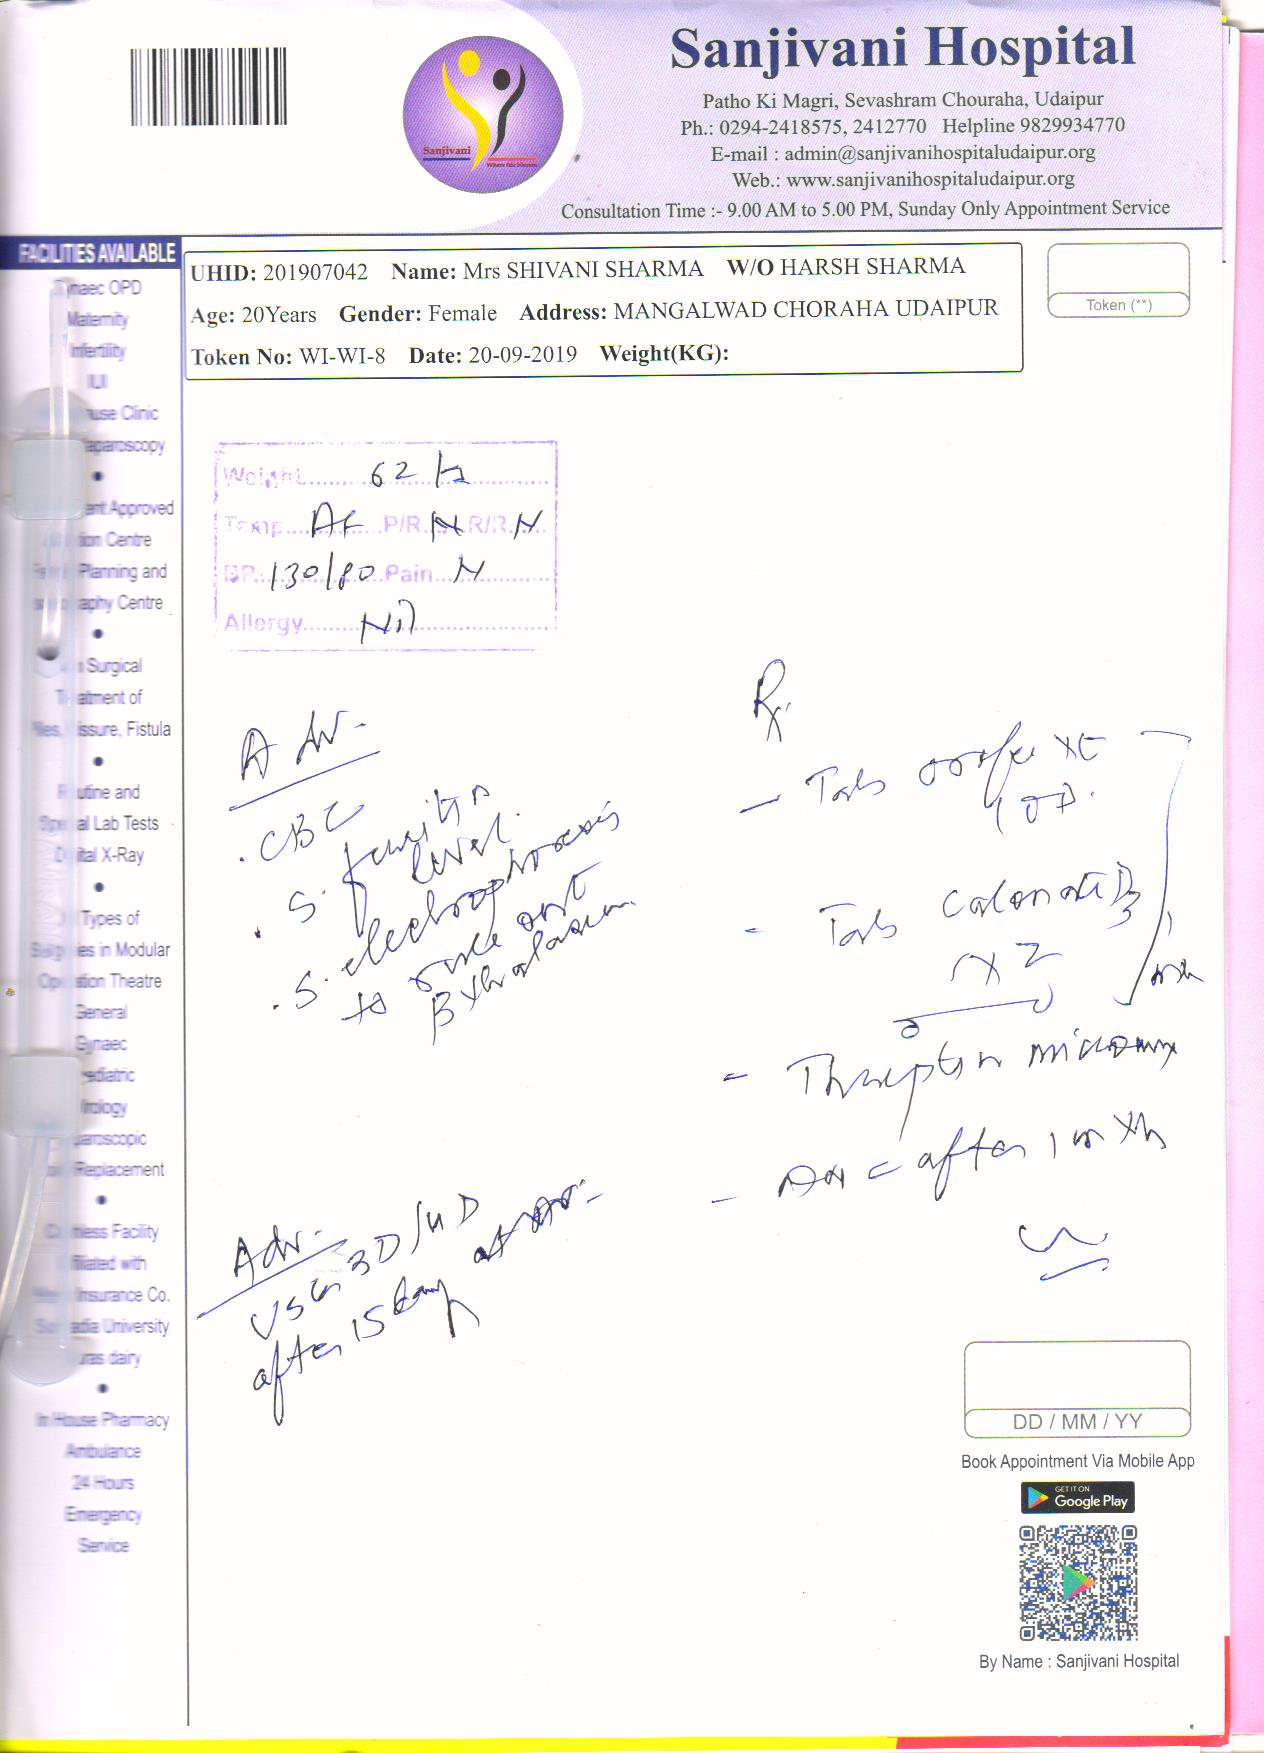 Sanjivani Hospital
Patho Ki Magri, Sevashram Chouraha, Udaipur
Ph.: 0294-2418575, 2412770 Helpline 9829934770
E-mail : admin@sanjivanihospitaludaipur.org
Web.: www.sanjivanihospitaludaipur.org
Consultation Time :- 9.00 AM to 5.00 PM, Sunday Only Appointment Service
Sanjivani
FACILITIES AVAILABLE
OPD
Maternity
Infertility
IUI
Clinic
Approved
Centre
Planning and
Centre
Surgical
of
Fistula
and
Lab Tests
X-Ray
Types of
in Modular
Theatre
General
Gynaec
Replacement
Facility
with
Insurance Co.
University
dairy
In House Pharmacy
Ambulance
24 Hours
Emergency
Service
UHID: 201907042 Name: Mrs SHIVANI SHARMA W/O HARSH SHARMA
Age: 20Years Gender: Female Address: MANGALWAD CHORAHA UDAIPUR
Token No: WI-WI-8 Date: 20-09-2019 Weight(KG):
Token (**)
Weight 62
Temp AF P/R N R/R N
BP 130/80 Pain N
Allergy Nil
Adv.
. CBC
. S. ferritin
level.
. S. electrophoresis
to rule out
β thalassem
Rx
- Tab
1 OD.
- Tab D3
1 x 2
-
- after 1 mth
Adv.
USG 3D/4D
after 15 day
DD / MM / YY
Book Appointment Via Mobile App
GET IT ON
Google Play
By Name : Sanjivani Hospital